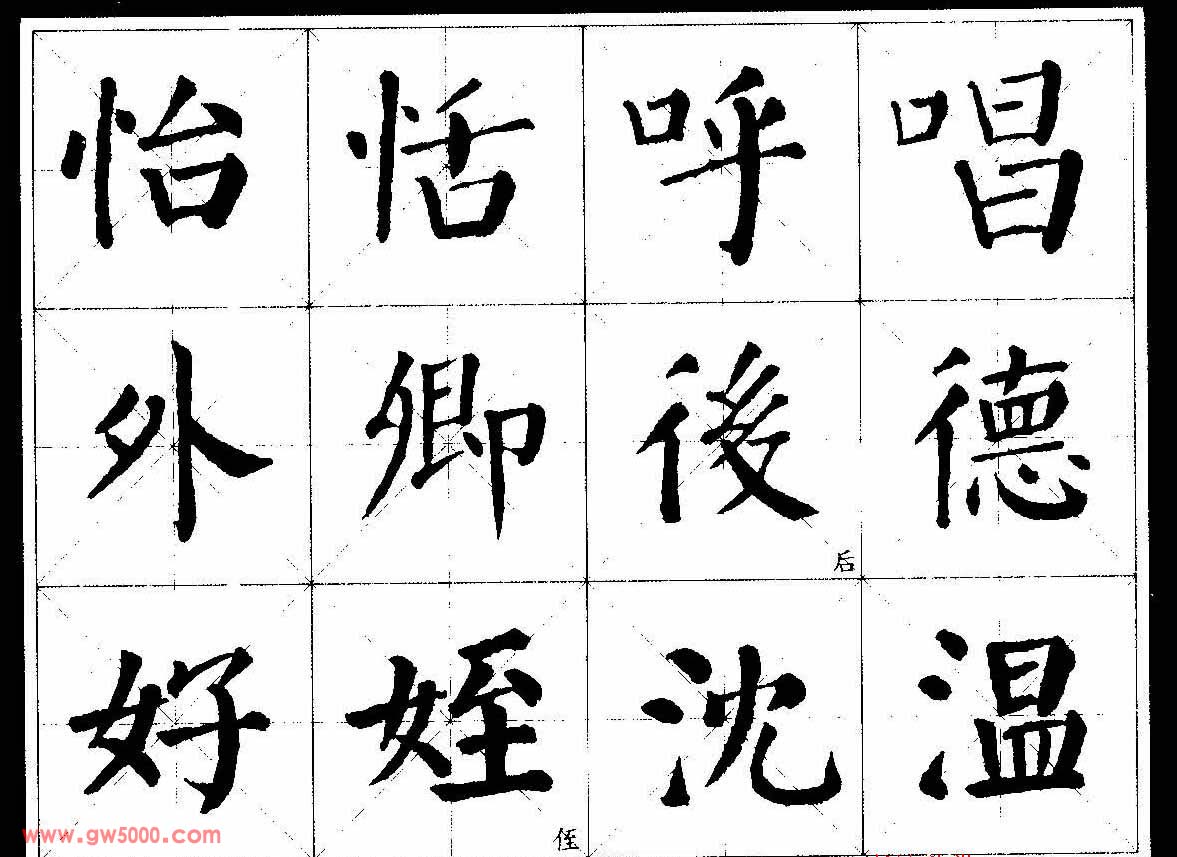 怡恬呼唱
外卿後德
后
好姪沈温
侄
www.gw5000.com